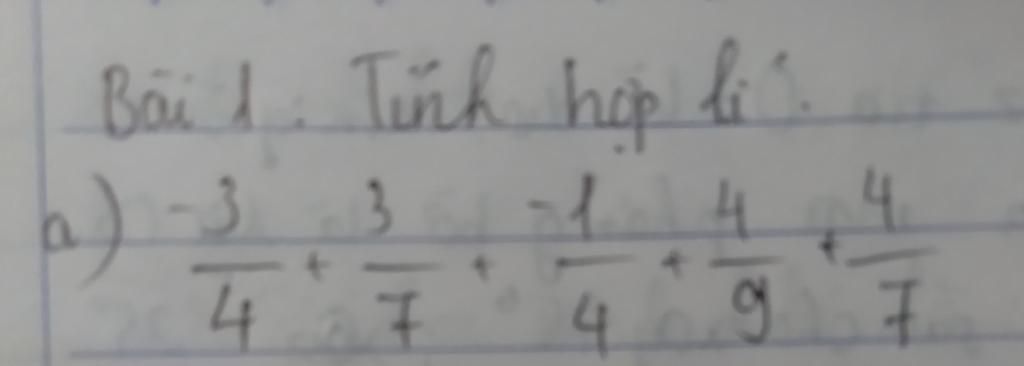 Bài 1: Tính hợp lí.
a) -3/4 + 3/7 + -1/4 + 4/9 + 4/7